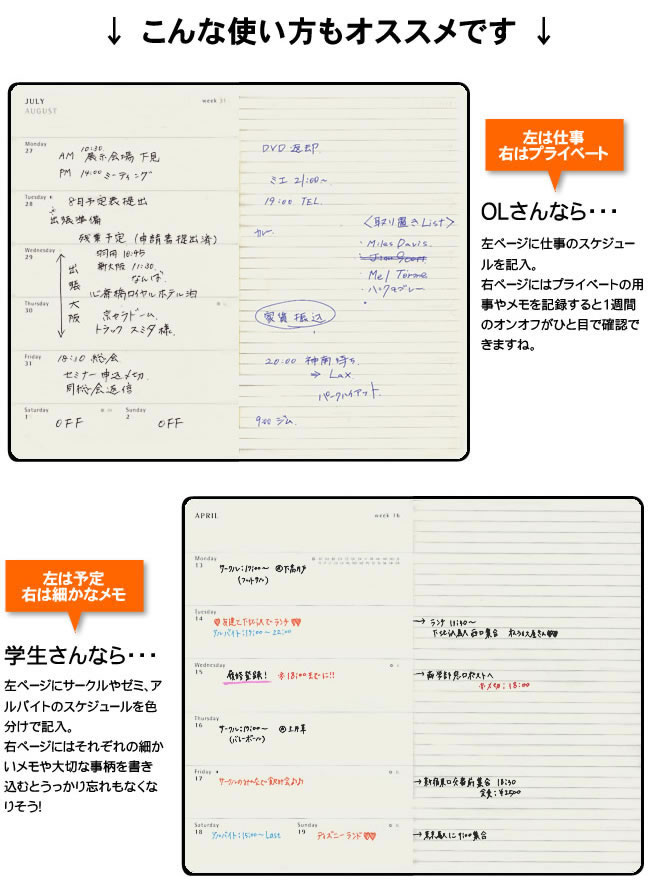 ↓ こんな使い方もオススメです ↓
JULY
AUGUST
week 31
Monday
27
AM 10:30 展示会場 下見
PM 14:00 ミーティング
DVD 返却
ミエ 21:00〜
Tuesday
28
8月予定表提出
出張準備
残業予定 (申請書提出済)
19:00 TEL.
カレー
<取り置きList>
・Miles Davis
・Mel Torme
Wednesday
29
羽田 10:45
新大阪 11:30
なんば
心斎橋ロイヤルホテル泊
出張大阪
Thursday
30
京セラドーム
トラック スミダ様
家賃振込
Friday
31
18:10 総会
セミナー申込〆切
同総会返信
20:00
⇒ Lax
パークハイアット
Saturday
1
OFF
Sunday
2
OFF
9:00 ジム
左は仕事
右はプライベート
OLさんなら・・・
左ページに仕事のスケジュー
ルを記入。
右ページにはプライベートの用
事やメモを記録すると1週間
のオンオフがひと目で確認で
きますね。
左は予定
右は細かなメモ
学生さんなら・・・
左ページにサークルやゼミ、ア
ルバイトのスケジュールを色
分けで記入。
右ページにはそれぞれの細か
いメモや大切な事柄を書き
込むとうっかり忘れもなくな
りそう!
APRIL
week 16
Monday
13
サークル:17:00〜 @下高井戸
(フットサル)
Tuesday
14
♡友達と下北沢でランチ♡♡
アルバイト:17:00〜22:00
→ ランチ 11:30〜
下北沢駅 西口集合
Wednesday
15
履修登録! ※18:00までに!!
→ 商学部窓口ポストへ
※〆切:18:00
Thursday
16
サークル:17:00〜
(バレーボール)
Friday
17
サークルのみんなで飲み会
→ 新宿東口交番前集合 18:30
会費:¥2500
Saturday
18
アルバイト:15:00〜Last
Sunday
19
ディズニーランド♡♡
→ 東京駅に9:00集合